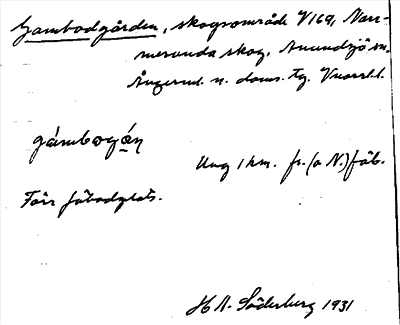 Gambodgården, skogsområde V169, Norr-
meranda skog, Anundsjö sn.
Ångerml. n. doms. tg. Vnorrl. l.
gámbogáṇ
Ung 1 km. fr. (o N.) fäb.
Förr fäbodplats.
H A. Söderberg 1931